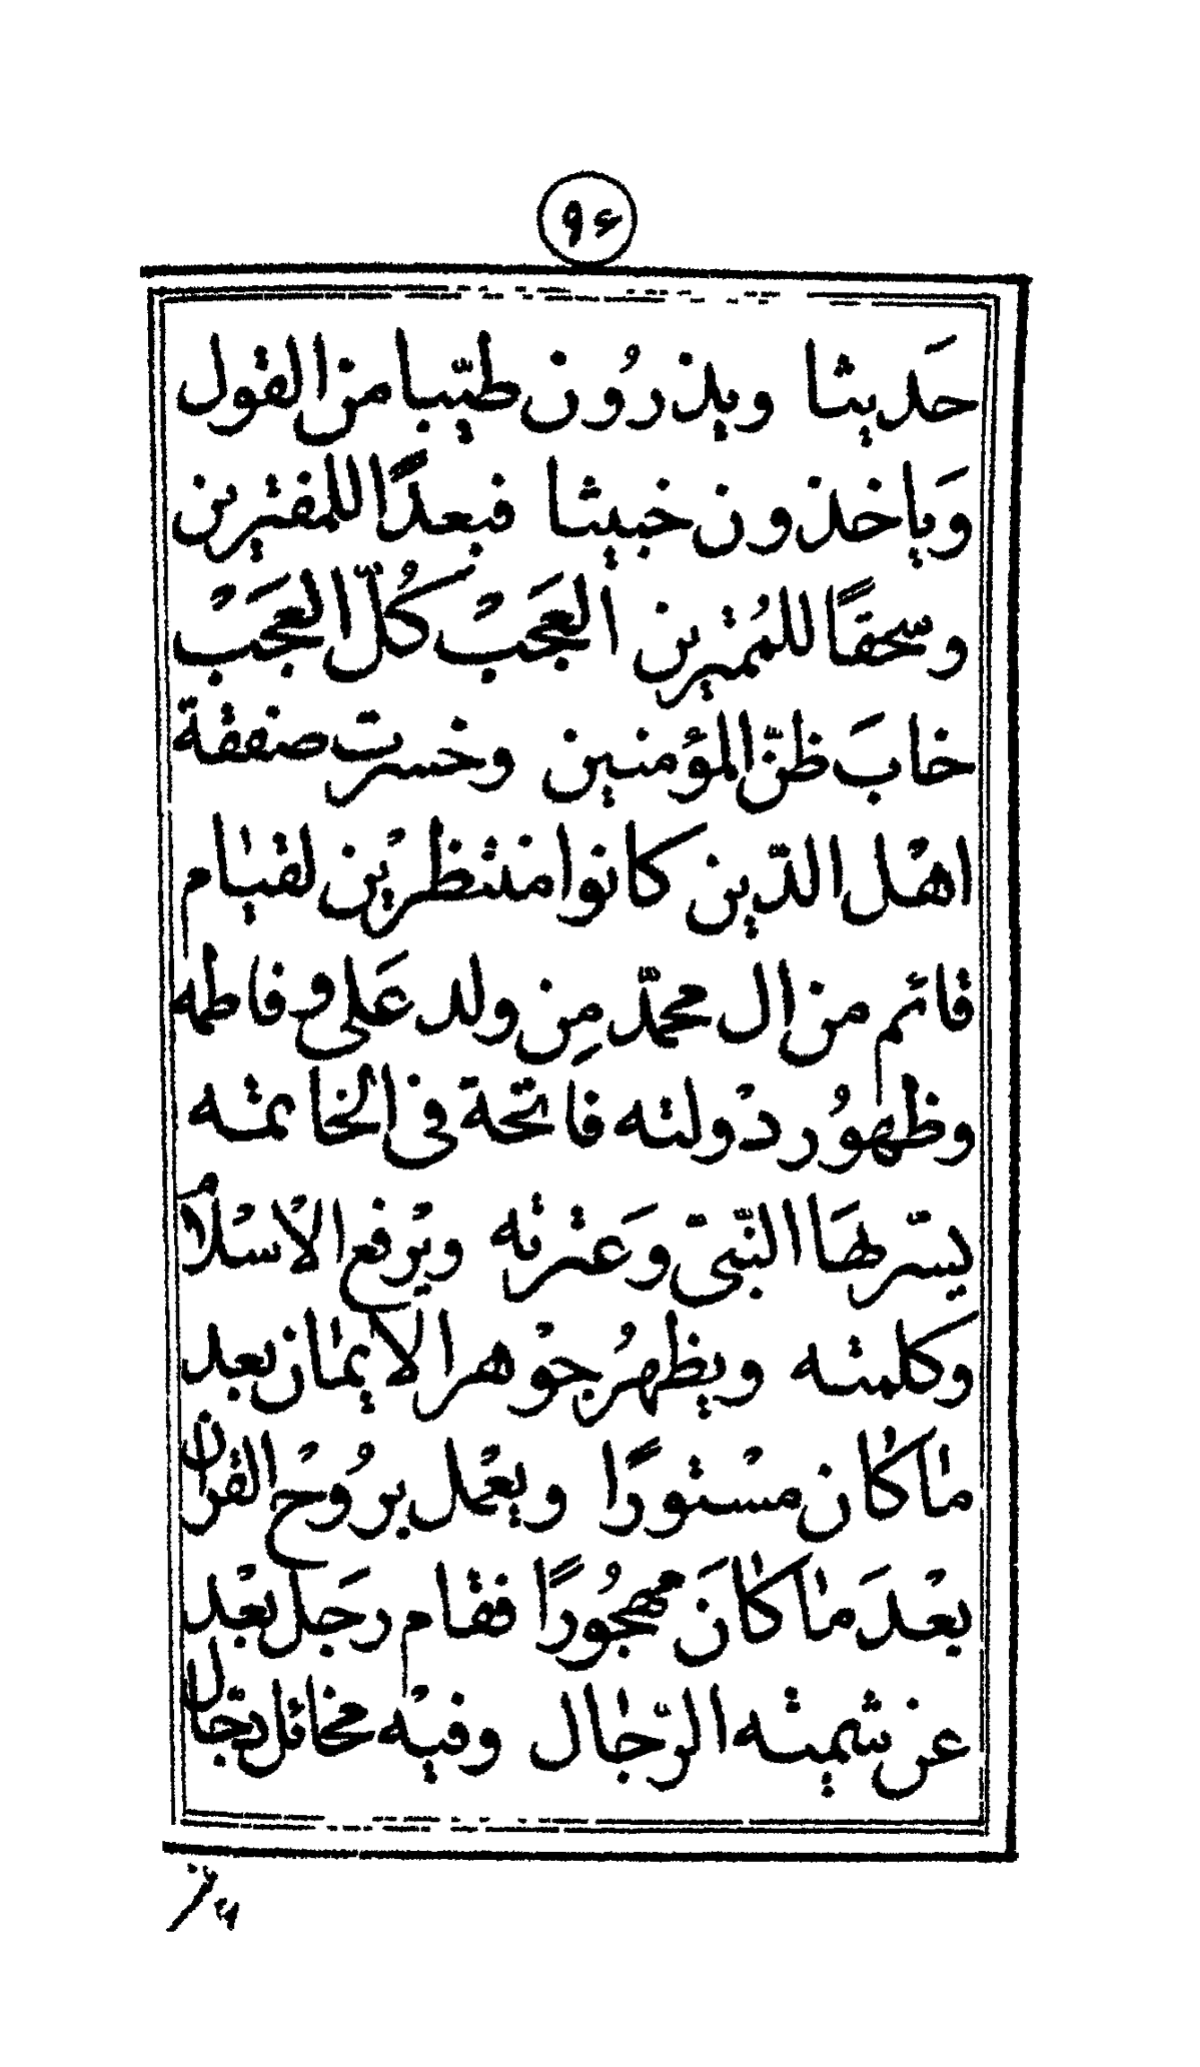 ۹۶
حَديثا ويذرُون طيّبا من القول
وَياخذون خبيثا فبعدًا للمفترين
وسحقًا للمُمترين العَجبْ كُلّ العَجبْ
خابَ ظنّ المؤمنين وخسرت صفقة
اهْل الدّين كانوا منتظرْين لقيام
قائم من ال محمّد مِن ولد عَلى و فاطمه
وظهوُر دوْلته فاتحة فى الخاتمته
يسّر بهَا النّبىّ وَعترته ويرْفع الاْسْلامُ
وكلمته ويظهرُ جوْهر الايمان بعد
ما كان مسْتورًا ويعْمل برُوْح القران
بعْدَ ما كانَ مهجُورًا فقام رجَل بعْد
عن شميته الرّجال وفيْه مخائل دجّال